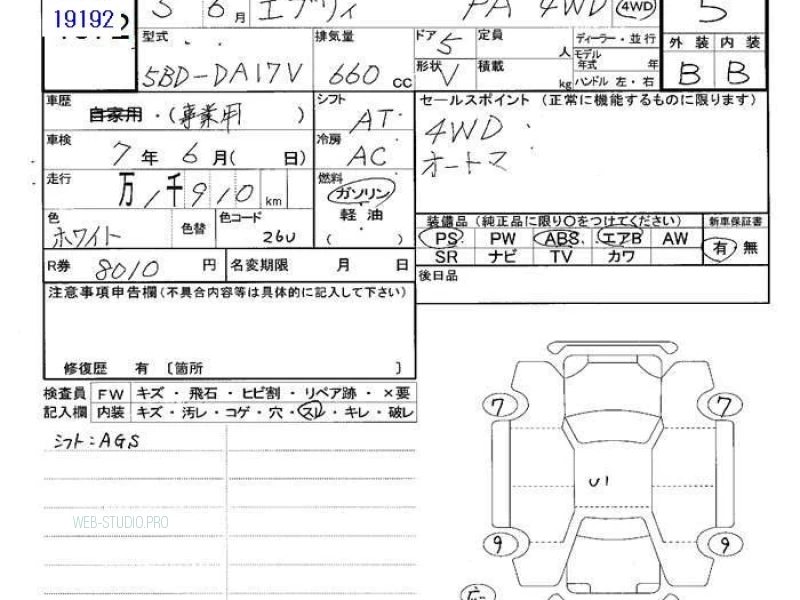 19192
5 6月 エブリィ PA 4WD 4WD 5
型式 排気量 ドア 定員 ディーラー・並行 外装 内装
5BD-DA17V 660 cc 5 人 モデル年式 年
形状 V 積載 kg ハンドル 左・右 B B
車歴 自家用・(事業用) シフト AT
セールスポイント (正常に機能するものに限ります)
車検 7年 6月( 日) 冷房 AC
4WD
オートマ
走行 万 1千910 km 燃料 ガソリン
軽油
( )
色 ホワイト 色替 色コード 26U
装備品 (純正品に限り○をつけてください) 新車保証書
PS PW ABS エアB AW 有 無
SR ナビ TV カワ
R券 8010 円 名変期限 月 日
後日品
注意事項申告欄(不具合内容等は具体的に記入して下さい)
修復歴 有 〔箇所 〕
検査員 FW キズ・飛石・ヒビ割・リペア跡・×要
記入欄 内装 キズ・汚レ・コゲ・穴・スレ・キレ・破レ
シフト:AGS
7 7
U1
WEB-STUDIO.PRO
9 9